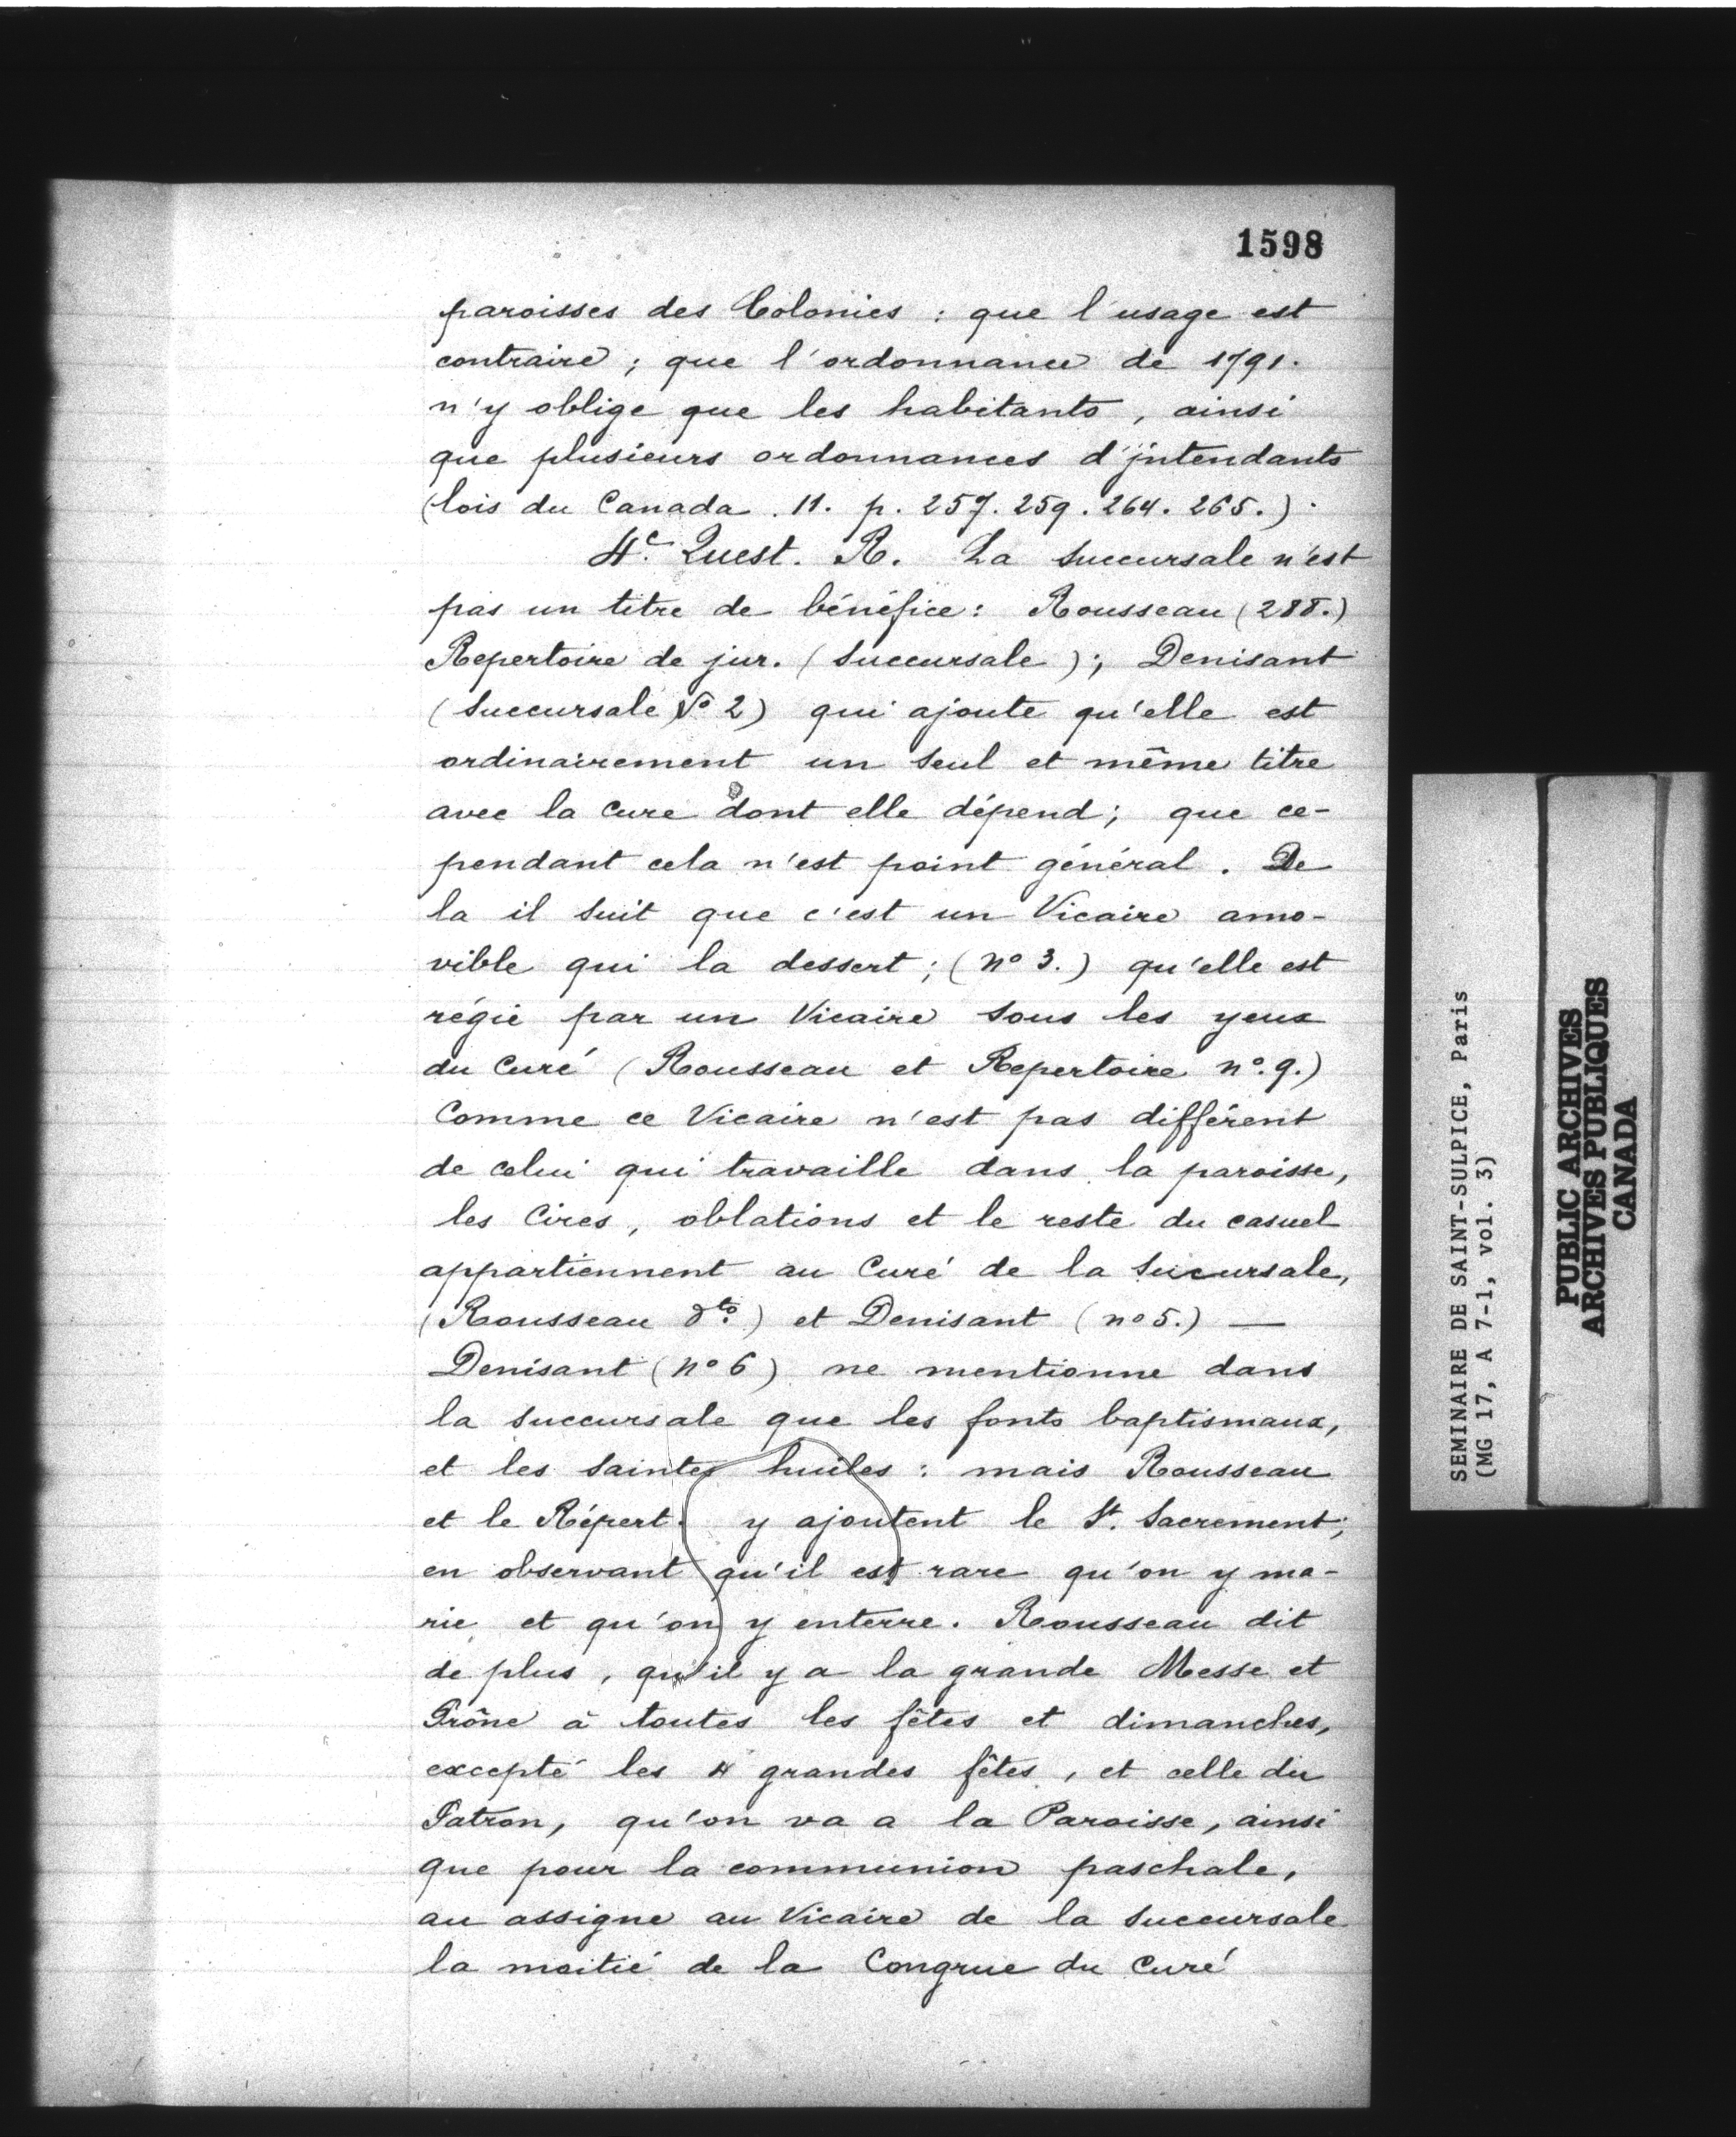 1598
paroisses des Colonies : que l'usage est
contraire ; que l'ordonnance de 1791.
n'y oblige que les habitants, ainsi
que plusieurs ordonnances d'intendants
(lois du Canada . 11. p. 257. 259. 264. 265.) .
4e. Quest. R. La succursale n'est
pas un titre de bénéfice : Rousseau (288.)
Repertoire de jur. (succursale) ; Denisant
(succursale No 2) qui ajoute qu'elle est
ordinairement un seul et même titre
avec la cure dont elle dépend ; que ce-
pendant cela n'est point général. De
la il suit que c'est un Vicaire amo-
vible qui la dessert ; (no 3.) qu'elle est
régie par un Vicaire sous les yeux
du Curé (Rousseau et Repertoire no. 9.)
Comme ce Vicaire n'est pas différent
de celui qui travaille dans la paroisse,
les Cires, oblations et le reste du casuel
appartiennent au Curé de la succursale,
(Rousseau dto) et Denisant (no 5.) —
Denisant (no 6) ne mentionne dans
la succursale que les fonts baptismaux,
et les saintes huiles : mais Rousseau
et le Répert. y ajoutent le St. Sacrement ;
en observant qu'il est rare qu'on y ma-
rie et qu'on y enterre. Rousseau dit
de plus, qu'il y a la grande Messe et
Prône à toutes les fêtes et dimanches,
excepté les 4 grandes fêtes, et celle du
Patron, qu'on va a la Paroisse, ainsi
que pour la communion paschale,
au assigne au Vicaire de la succursale
la moitié de la Congrue du Curé
SEMINAIRE DE SAINT-SULPICE, Paris
(MG 17, A 7-1, vol. 3)
PUBLIC ARCHIVES
ARCHIVES PUBLIQUES
CANADA